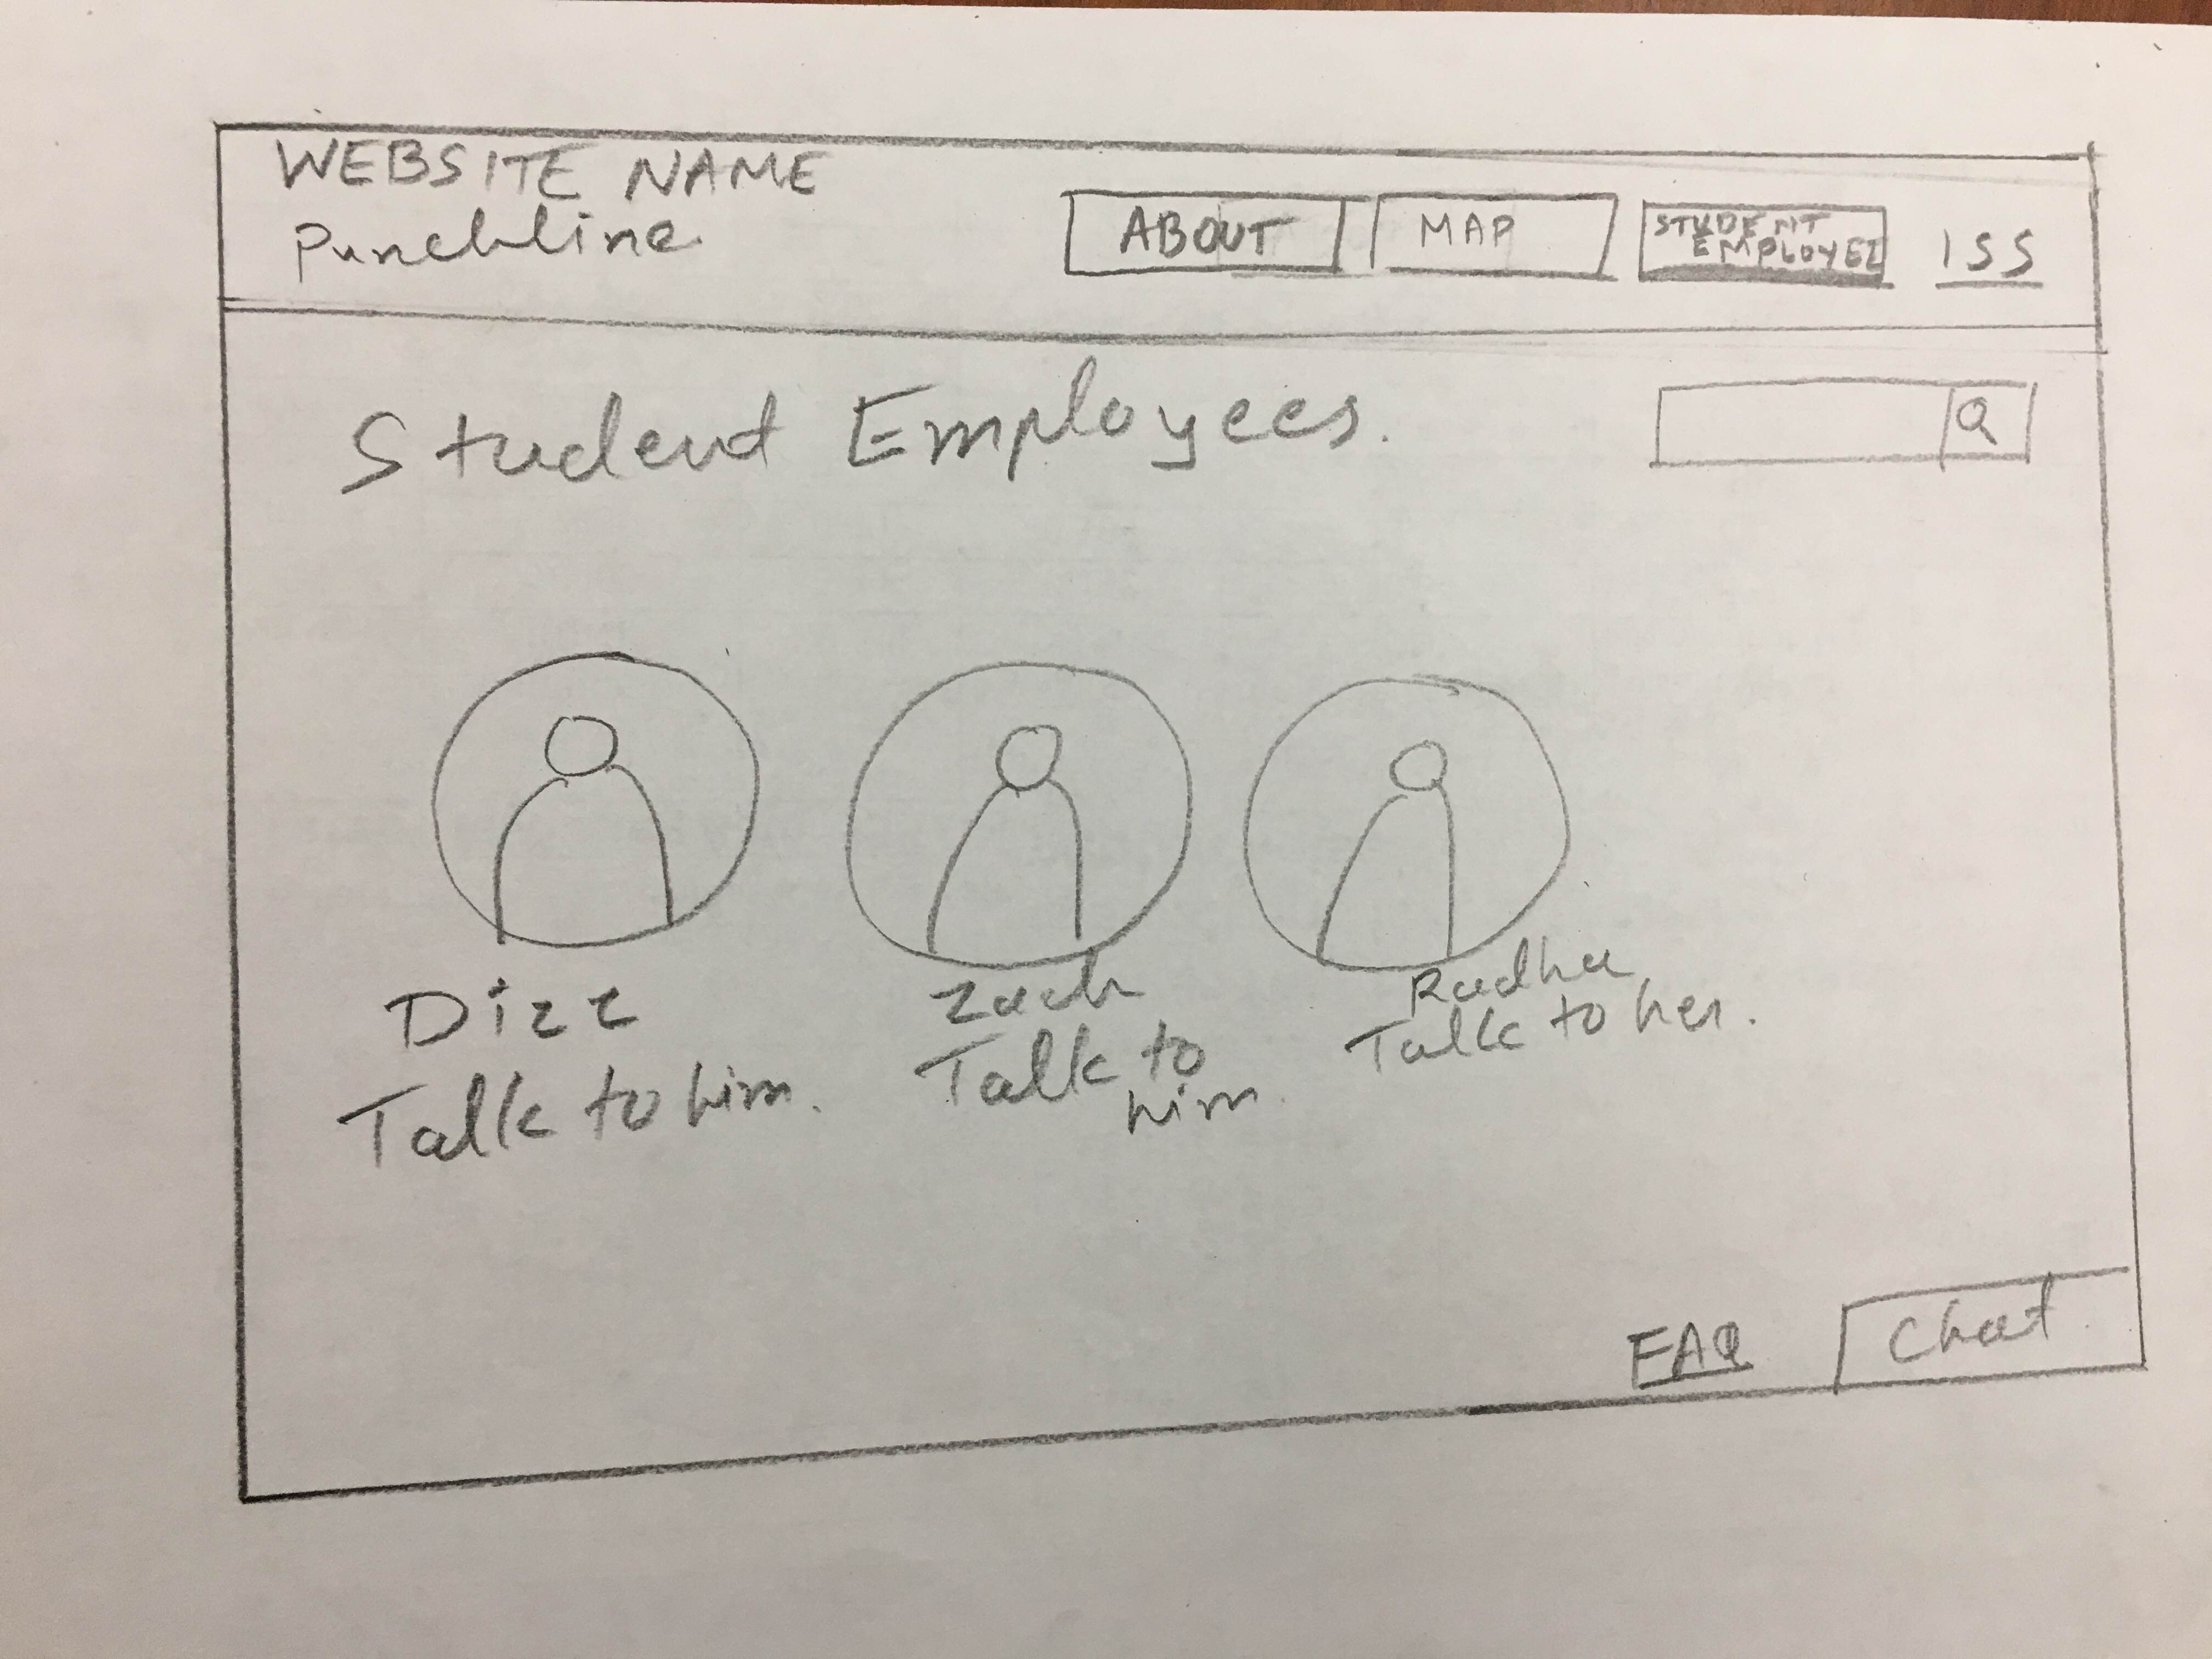 WEBSITE NAME
Punchline.
ABOUT
MAP
STUDENT
EMPLOYEE
ISS
Student Employees.
Q
Dizz
Talk to him.
Zach
Talk to
him.
Radha
Talk to her.
FAQ
Chat